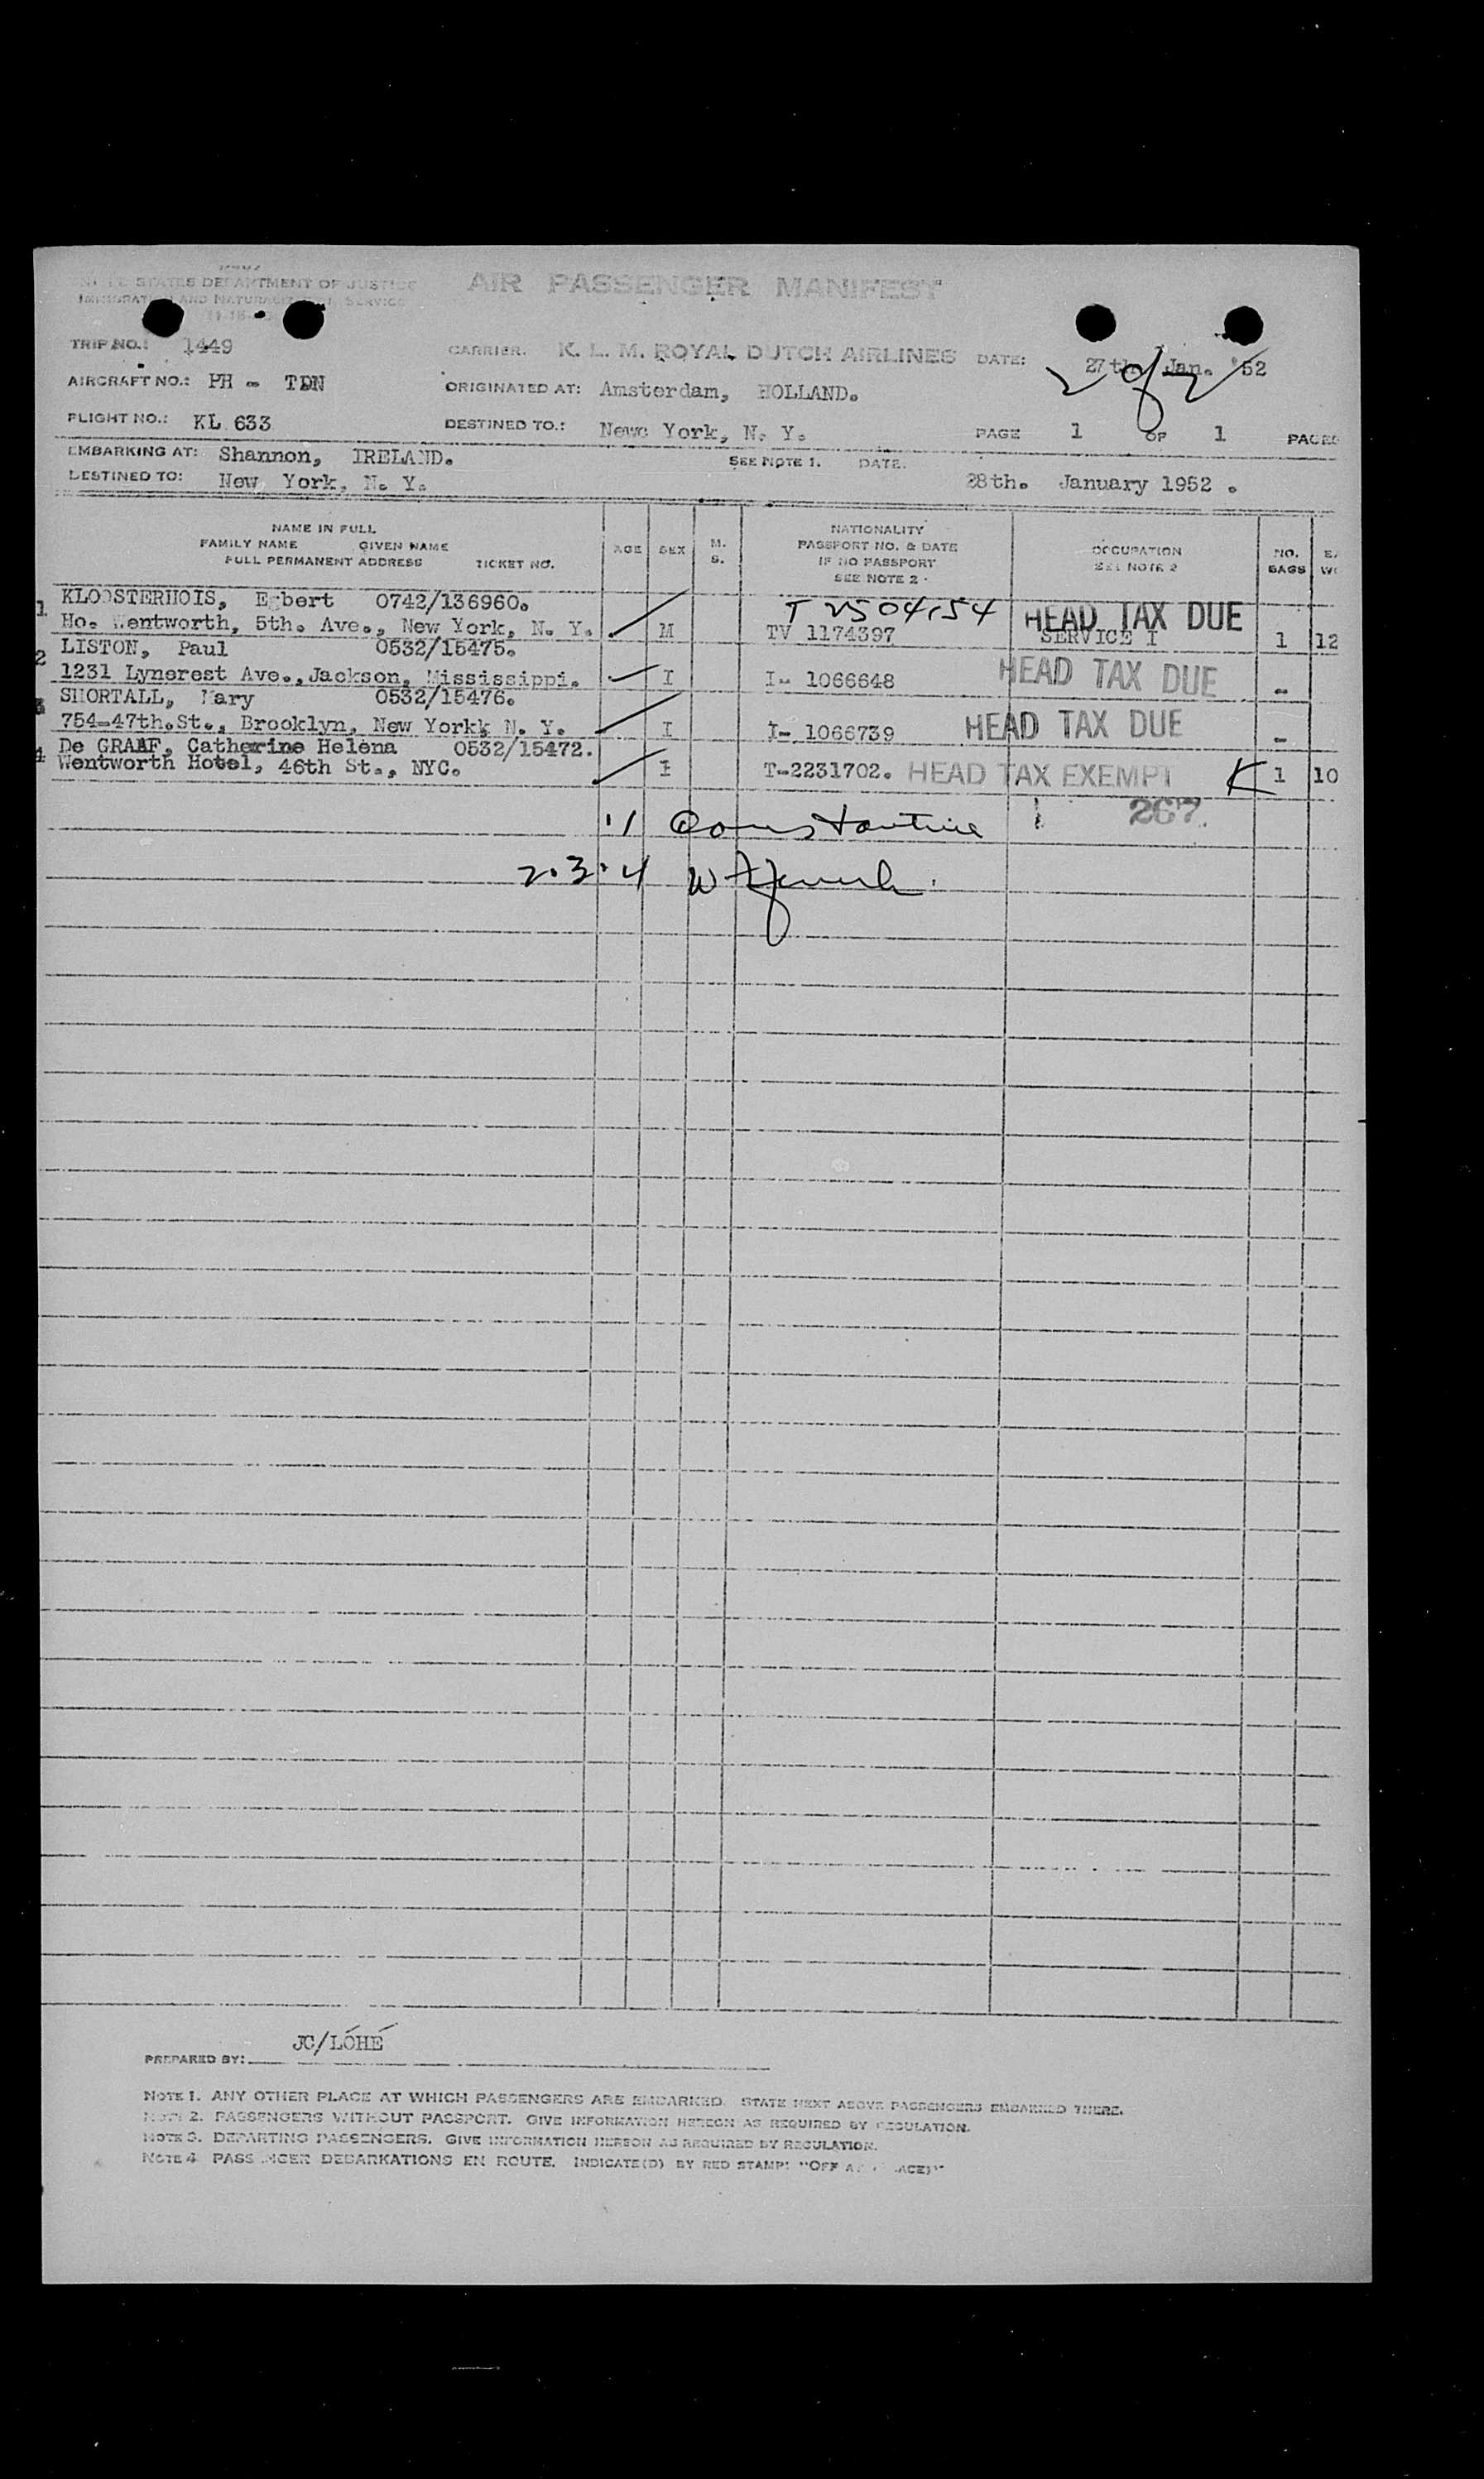 UNITED STATES DEPARTMENT OF JUSTICE
IMMIGRATION AND NATURALIZATION SERVICE
AIR PASSENGER MANIFEST
TRIP NO.: 1449
CARRIER. K. L. M. ROYAL DUTCH AIRLINES DATE: 27th. Jan. '52
AIRCRAFT NO.: PH - TDN
ORIGINATED AT: Amsterdam, HOLLAND.
FLIGHT NO.: KL 633
DESTINED TO.: Newc York, N. Y. PAGE 1 OF 1 PAGES
EMBARKING AT: Shannon, IRELAND. SEE NOTE 1. DATE.
DESTINED TO: New York, N. Y. 28th. January 1952 .
NAME IN FULL
FAMILY NAME GIVEN NAME
FULL PERMANENT ADDRESS TICKET NO.
AGE SEX M. S.
NATIONALITY
PASSPORT NO. & DATE
IF NO PASSPORT
SEE NOTE 2
OCCUPATION
SEE NOTE 2
NO. BAGS
1 KLOOSTERHOIS, Egbert 0742/136960. T 2504154 HEAD TAX DUE
Ho. Wentworth, 5th. Ave., New York, N. Y. M TV 1174397 SERVICE I 1 12
2 LISTON, Paul 0532/15475.
1231 Lynerest Ave., Jackson, Mississippi. I I- 1066648 HEAD TAX DUE -
3 SHORTALL, Mary 0532/15476.
754-47th.St., Brooklyn, New Yorkk N. Y. I I- 1066739 HEAD TAX DUE -
4 De GRAAF, Catherine Helena 0532/15472.
Wentworth Hotel, 46th St., NYC. I T-2231702. HEAD TAX EXEMPT K 1 10
1 Constantine 267.
2.3.4
PREPARED BY: JC/LÓHÉ
NOTE 1. ANY OTHER PLACE AT WHICH PASSENGERS ARE EMBARKED. STATE NEXT ABOVE PASSENGERS EMBARKED THERE.
NOTE 2. PASSENGERS WITHOUT PASSPORT. GIVE INFORMATION HEREON AS REQUIRED BY REGULATION.
NOTE 3. DEPARTING PASSENGERS. GIVE INFORMATION HEREON AS REQUIRED BY REGULATION.
NOTE 4. PASSENGER DEBARKATIONS EN ROUTE. INDICATE(D) BY RED STAMP: "OFF AT (PLACE)"